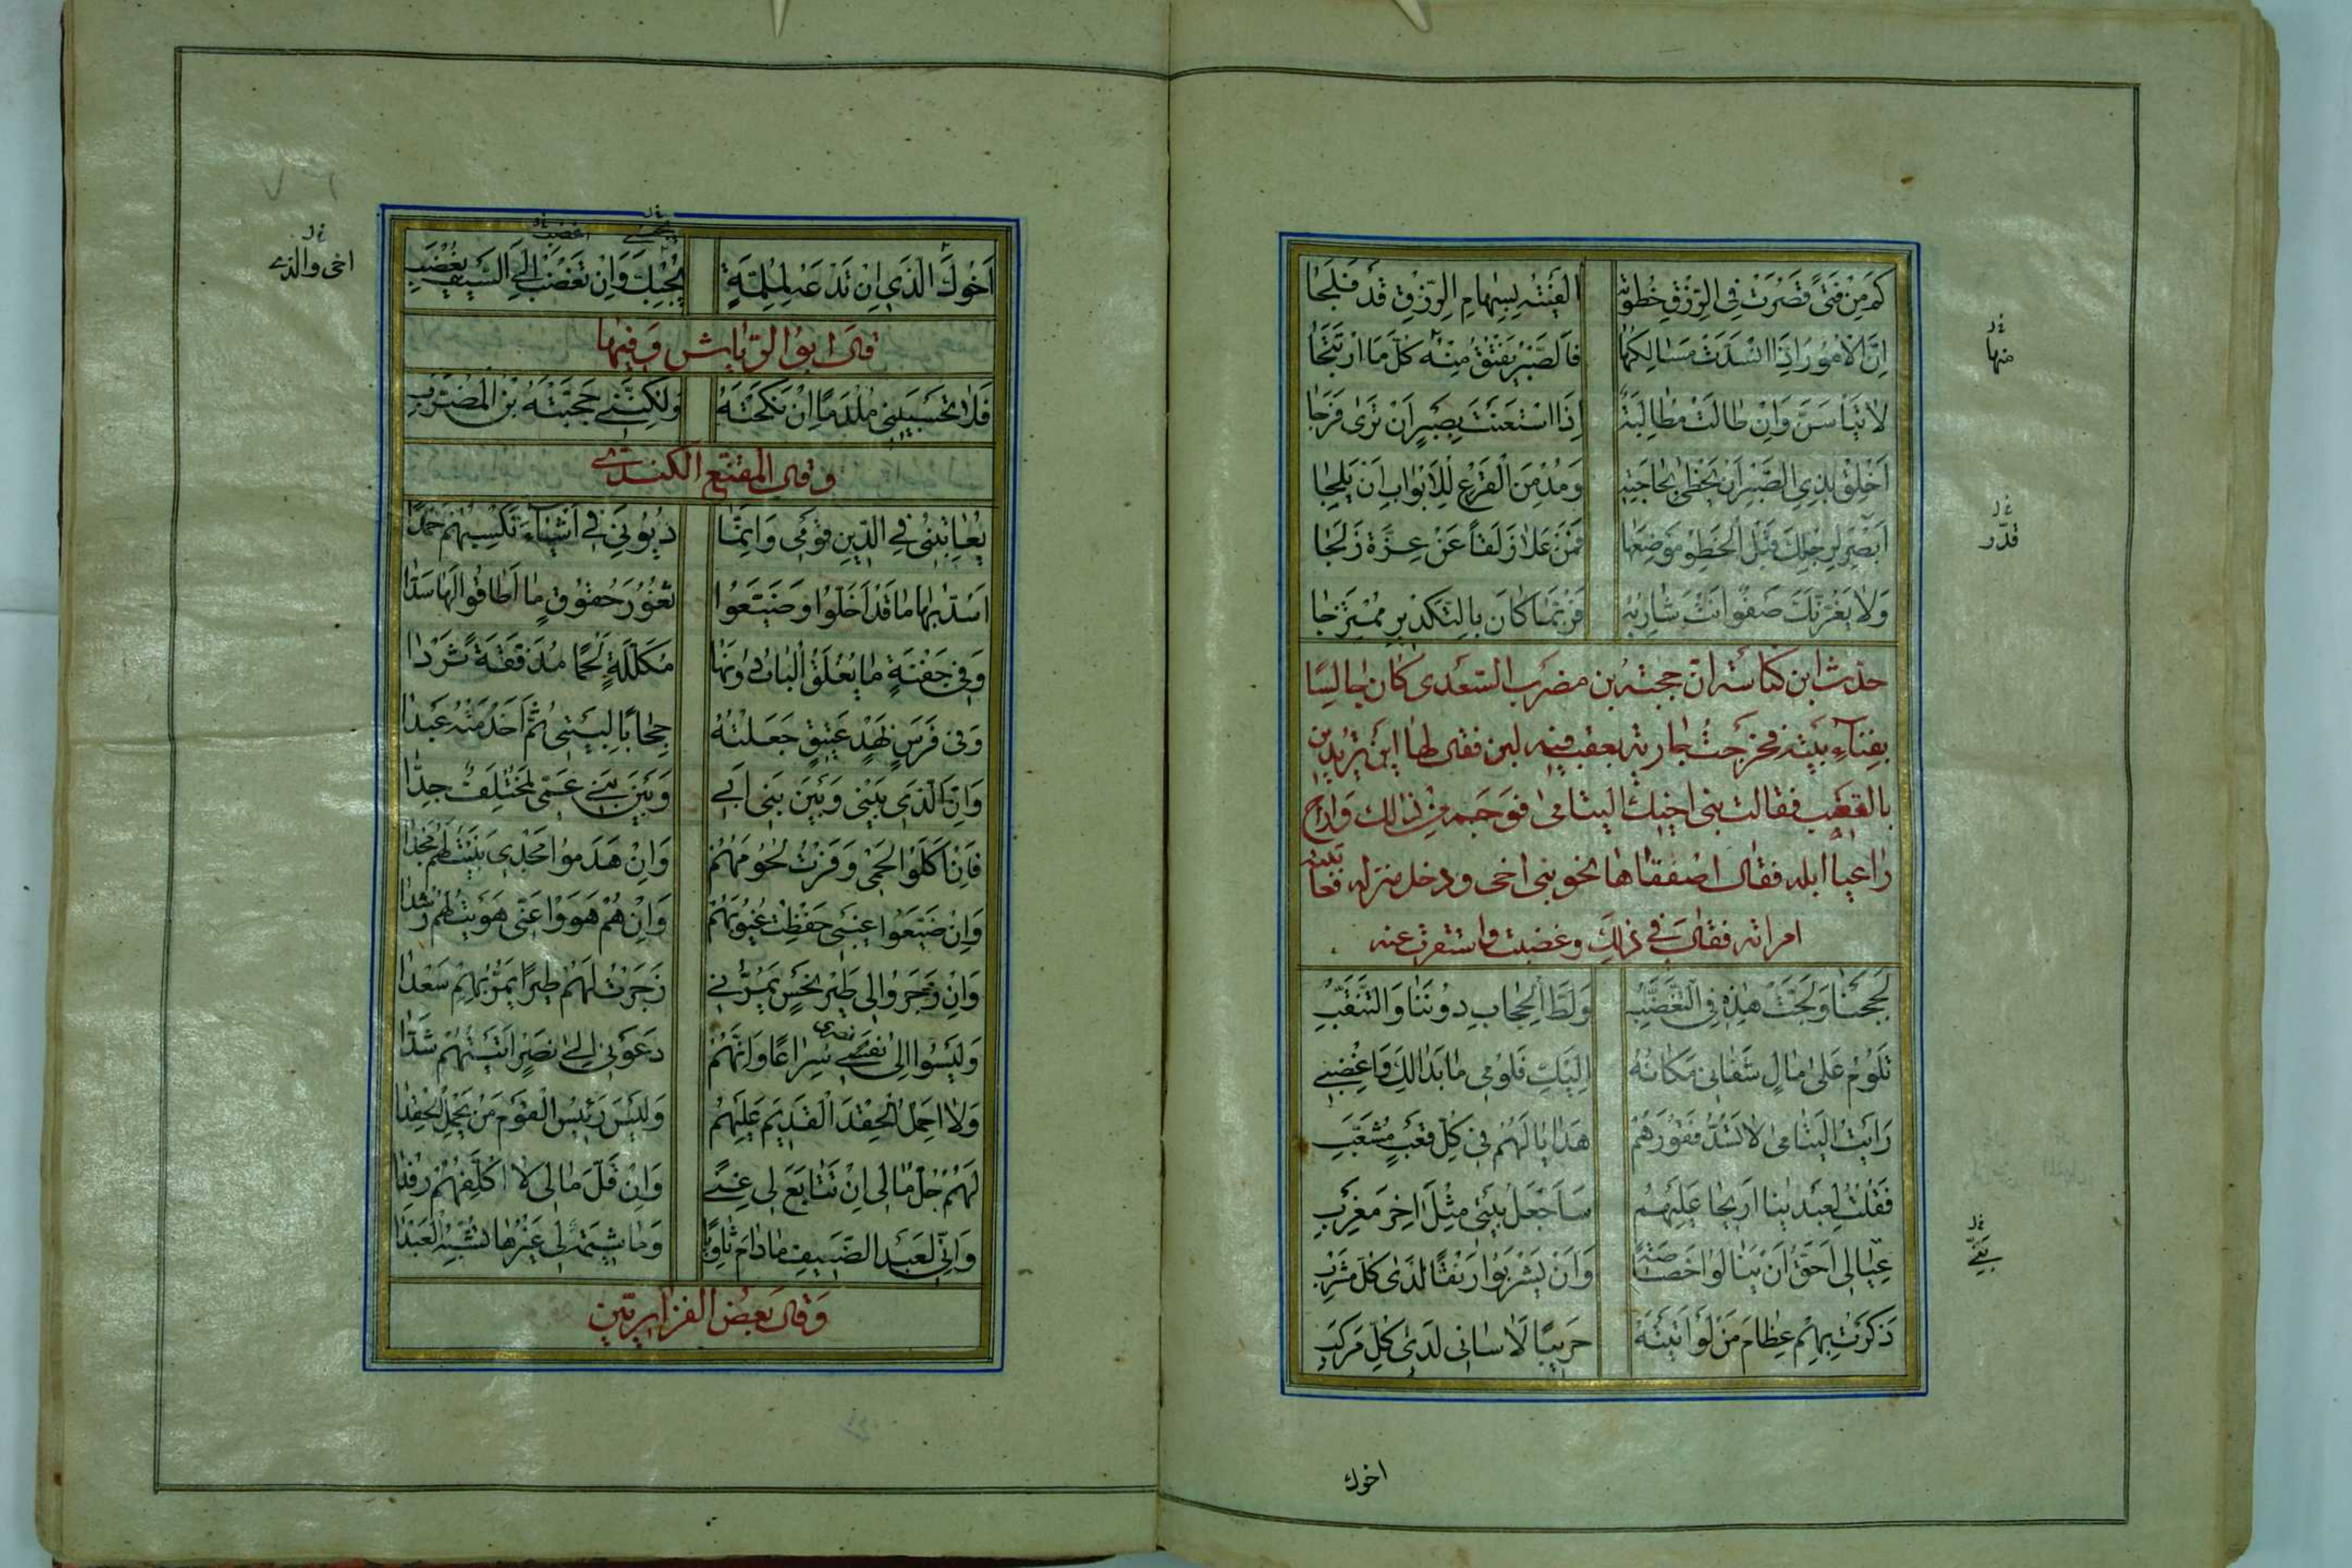 كَمْ مِنْ فَتًى قَصُرَتْ فِي الرِّزْقِ خُطْوَتُهُ اَلْفَيْتَهُ بِسِهَامِ الرِّزْقِ قَدْ فَلَجَا
اِنَّ الْاُمُورَ اِذَا انْسَدَّتْ مَسَالِكُهَا فَالصَّبْرُ يَفْتُقُ مِنْهُ كُلَّ مَا ارْتَتَجَا
لَا تَيْاَسَنَّ وَاِنْ طَالَتْ مُطَالَبَةٌ اِذَا اسْتَعَنْتَ بِصَبْرٍ اَنْ تَرٰى فَرَجَا
اَخْلِقْ بِذِي الصَّبْرِ اَنْ يَحْظٰى بِحَاجَتِهِ وَمُدْمِنِ الْقَرْعِ لِلْاَبْوَابِ اَنْ يَلِجَا
اَبْصِرْ لِرِجْلِكَ قَبْلَ الْخَطْوِ مَوْضِعَهَا فَمَنْ عَلَا زَلَقًا عَنْ غِرَّةٍ زَلَجَا
وَلَا يَغُرَّنْكَ صَفْوٌ اَنْتَ شَارِبُهُ فَرُبَّمَا كَانَ بِالتَّكْدِيرِ مُمْتَزِجَا
حدّث ابن كناسة ان حجيّة بن مضرب السعدى كان جالسًا
بفناء بيته فخرجت جارية بقعب فيه لبن فقال لها اين تريدين
بالقعب فقالت بنى اخيك اليتامى فوجم من ذالك واراح
راعيا ابله فقال اصفقاها نحو بنى اخى ودخل منزله فعاتبته
امراته فقال فى ذلك وغضبت واستترت عنه
لَجِجْنَا وَلَجَّتْ هٰذِهِ فِي التَّغَضُّبِ وَلَطِّ الْحِجَابِ دُونَنَا وَالتَّنَقُّبِ
تَلُومُ عَلٰى مَالٍ شَفَانِي مَكَانُهُ اِلَيْكِ فَلُومِي مَا بَدَا لَكِ وَاغْضَبِي
رَاَيْتُ الْيَتَامٰى لَا تَسُدُّ فُقُورَهُمْ هَدَايَا لَهُمْ فِي كُلِّ قَعْبٍ مُشَعَّبِ
فَقُلْتُ لِعَبْدَيْنَا اَرِيحَا عَلَيْهِمُ سَاَجْعَلُ بَيْتِي مِثْلَ اٰخَرَ مُعْزِبِ
عِيَالِي اَحَقُّ اَنْ يَنَالُوا خَصَاصَةً وَاَنْ يَشْرَبُوا رَنْقًا لَدٰى كُلِّ مَشْرَبِ
ذَكَرْتُ بِهِمْ عِظَامَ مَنْ لَوْ اَتَيْتُهُ حَرِيبًا لَاٰسَانِي لَدٰى كُلِّ مَرْكَبِ
منها
قدّر
اخوك
اَخُوكَ الَّذِي اِنْ تَدْعُهُ لِمُلِمَّةٍ يُجِبْكَ وَاِنْ تَغْضَبْ اِلَى السَّيْفِ يَغْضَبِ
اخى والذى
قال ابو الرياش وفيها
فَلَا تَحْسَبِينِي مُلْدَمًا اِنْ نَكَحْتِهِ وَلٰكِنَّنِي حُجَيَّةُ بْنُ الْمُضَرَّبِ
وقال المقنع الكندى
يُعَاتِبُنِي فِي الدَّيْنِ قَوْمِي وَاِنَّمَا دُيُونِيَ فِي اَشْيَاءَ تَكْسِبُهُمْ حَمْدًا
اَسُدُّ بِهَا مَا قَدْ اَخَلُّوا وَضَيَّعُوا ثُغُورَ حُقُوقٍ مَا اَطَاقُوا لَهَا سَدَّا
وَفِي جَفْنَةٍ مَا يُغْلَقُ الْبَابُ دُونَهَا مُكَلَّلَةٍ لَحْمًا مُدَفَّقَةٍ ثُرْدَا
وَفِي فَرَسٍ نَهْدٍ عَتِيقٍ جَعَلْتُهُ حِجَابًا لِبَيْتِي ثُمَّ اَخْدَمْتُهُ عَبْدَا
وَاِنَّ الَّذِي بَيْنِي وَبَيْنَ بَنِي اَبِي وَبَيْنَ بَنِي عَمِّي لَمُخْتَلِفٌ جِدَّا
فَاِنْ اَكَلُوا لَحْمِي وَفَرْتُ لُحُومَهُمْ وَاِنْ هَدَمُوا مَجْدِي بَنَيْتُ لَهُمْ مَجْدَا
وَاِنْ ضَيَّعُوا غَيْبِي حَفِظْتُ غُيُوبَهُمْ وَاِنْ هُمْ هَوَوْا غَيِّي هَوَيْتُ لَهُمْ رُشْدَا
وَاِنْ زَجَرُوا لِي طَيْرَ نَحْسٍ تَمُرُّ بِي زَجَرْتُ لَهُمْ طَيْرًا يَمُرُّ بِهِمْ سَعْدَا
وَلَيْسُوا اِلٰى نَصْرِي سِرَاعًا وَاِنَّهُمْ دَعَوْنِي اِلٰى نَصْرٍ اَتَيْتُهُمْ شَدَّا
وَلَا اَحْمِلُ الْحِقْدَ الْقَدِيمَ عَلَيْهِمُ وَلَيْسَ رَئِيسُ الْقَوْمِ مَنْ يَحْمِلُ الْحِقْدَا
لَهُمْ جُلُّ مَالِي اِنْ تَتَابَعَ لِي غِنًى وَاِنْ قَلَّ مَالِي لَا اُكَلِّفُهُمْ رِفْدَا
وَاِنِّي لَعَبْدُ الضَّيْفِ مَا دَامَ ثَاوِيًا وَمَا شِيمَةٌ لِي غَيْرُهَا تُشْبِهُ الْعَبْدَا
وقال بعض الفزاريين